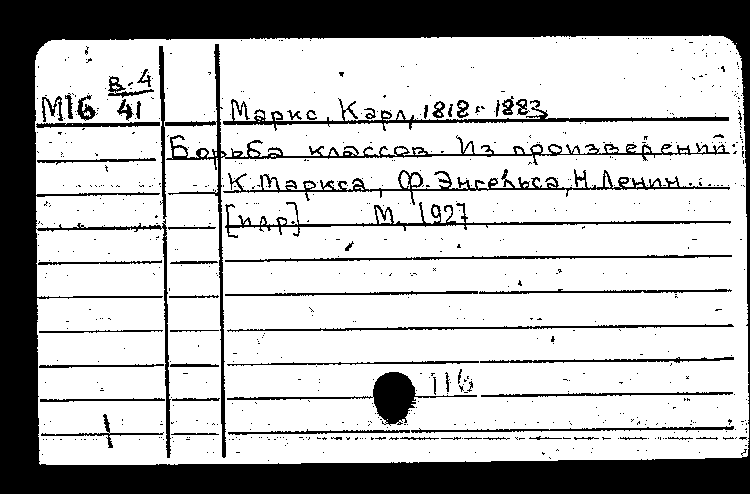 В-4
М16 41 Маркс, Карл, 1818-1883
Борьба классов. Из произведений:
К. Маркса, Ф. Энгельса, Н. Ленин...
[и др.] М., 1927
116